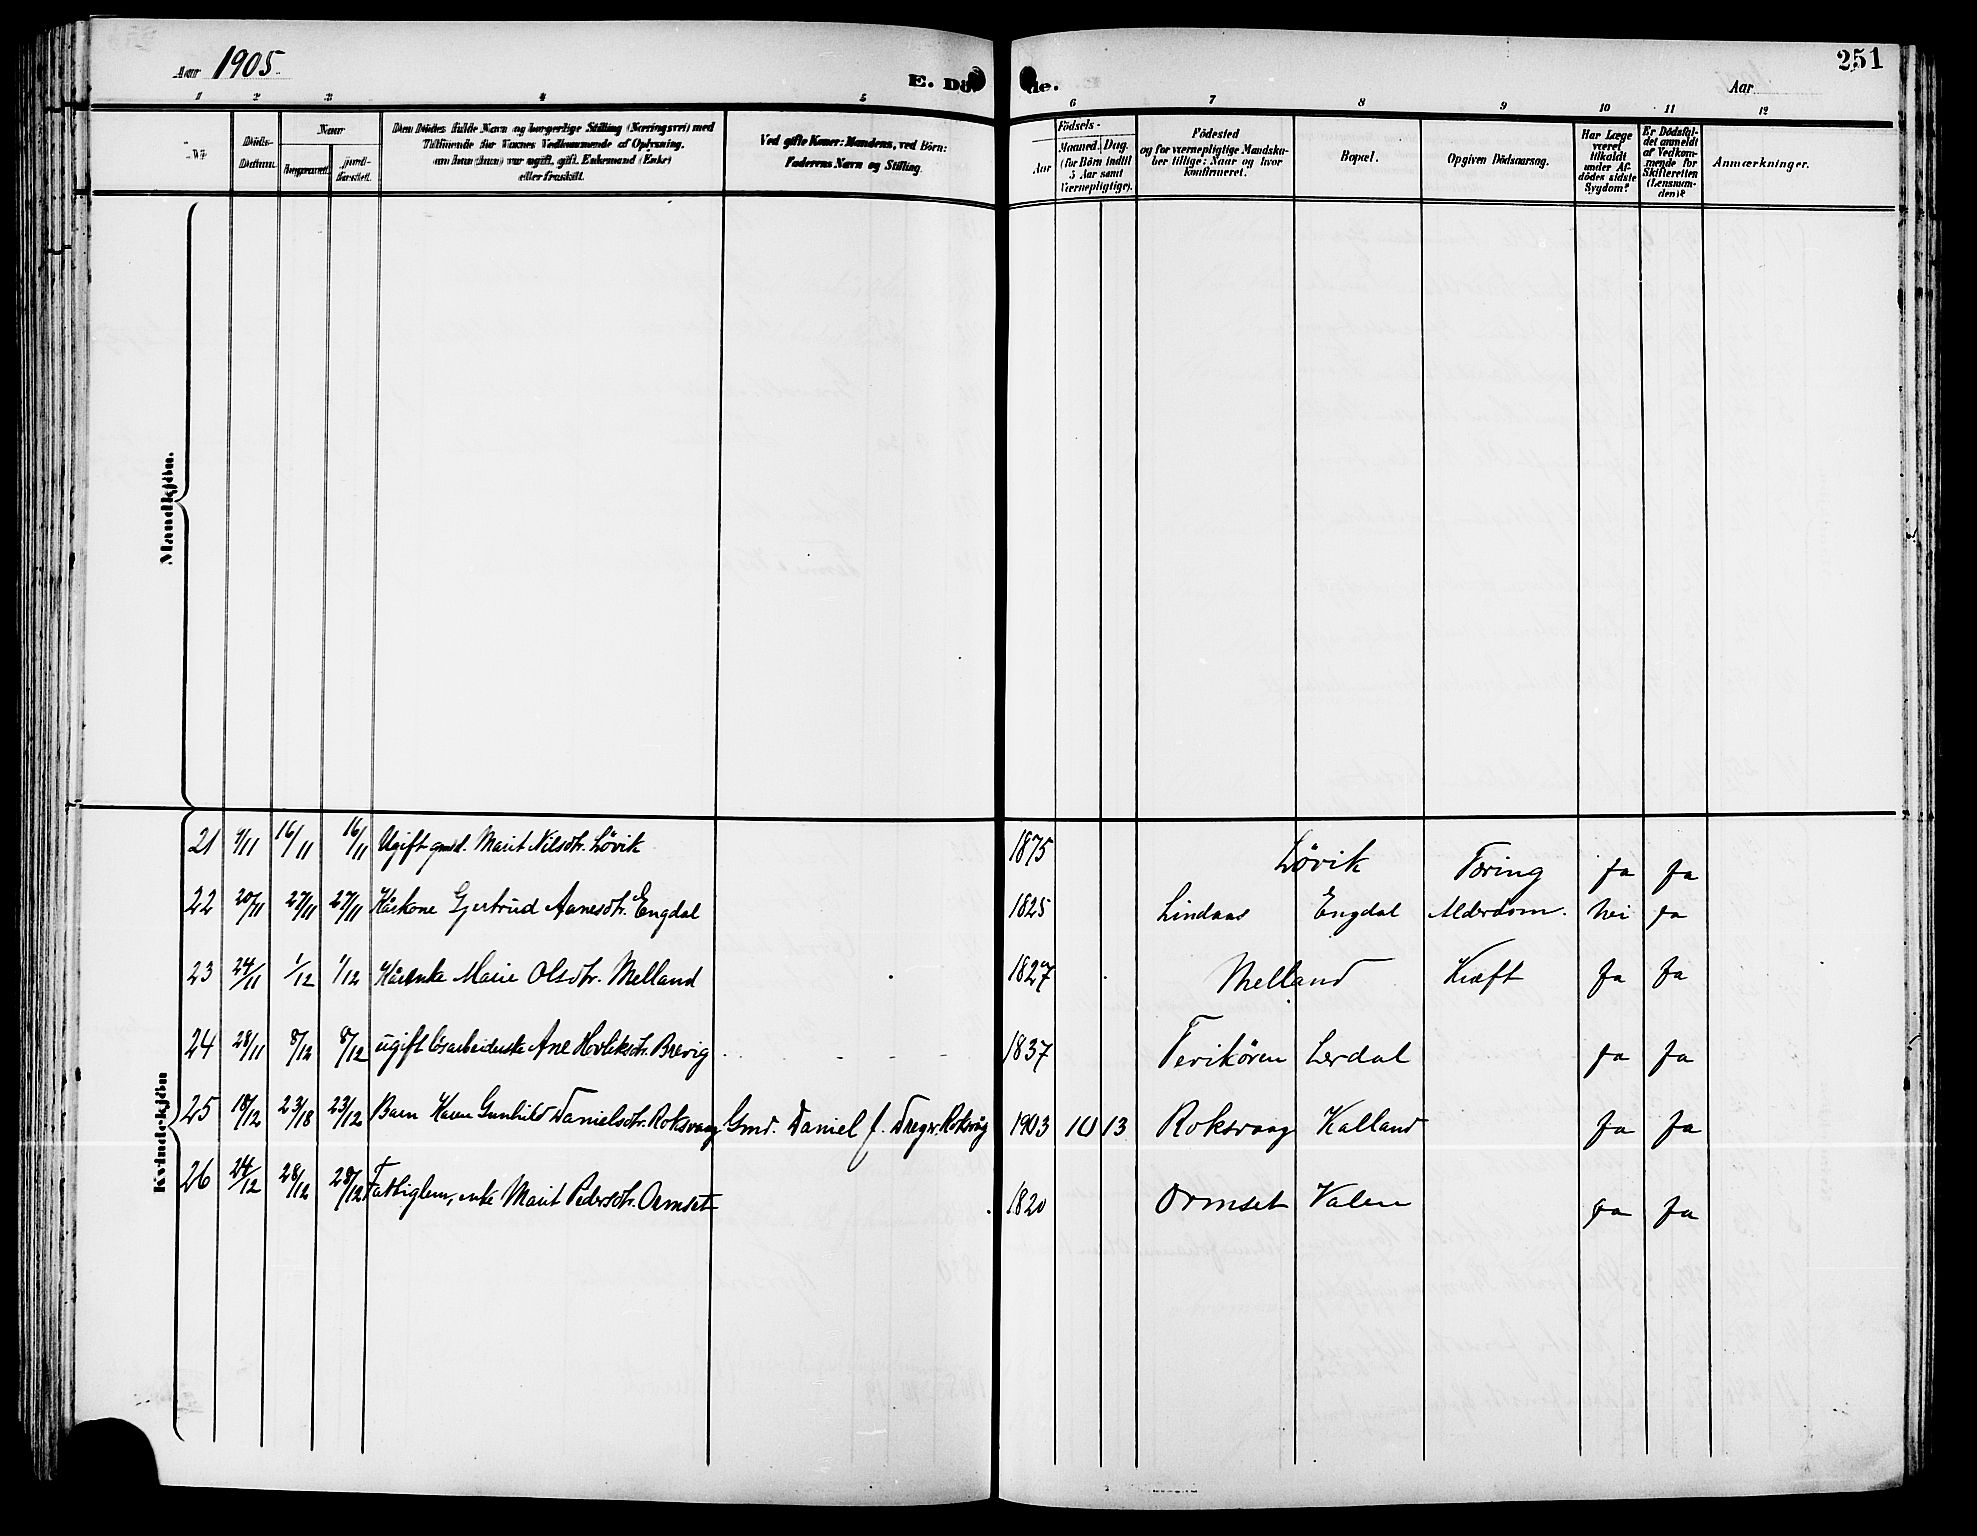 Aar 1905.
E. Dö de.
Aar
251
1 2 3 4 5 6 7 8 9 10 11 12
No
Döds-
Datum.
Naar
begravet.
jord-
fæstet.
Den Dödes fulde Navn og borgerlige Stilling (Næringsvei) med
Tilföiende for Voxnes Vedkommende af Oplysning,
om han (hun) var ugift, gift, Enkemand (Enke)
eller fraskilt.
Ved gifte Koner: Mandens, ved Börn:
Faderens Navn og Stilling.
Födsels-
Aar
Maaned. Dag.
(for Börn indtil
5 Aar samt
Værnepligtige).
Födested
og for værnepligtige Mandska-
ber tillige: Naar og hvor
Konfirmeret.
Bopæl.
Opgiven Dödsaarsag.
Har Læge
været
tilkaldt
under Af-
dödes sidste
Sygdom?
Er Dödsfal-
det anmeldt
af Vedkom-
mende for
Skifteretten
(Lensman-
den)?
Anmærkninger.
Mandkjön.
Kvindekjön
21 9/11 16/11 16/11 Ugift gmd. Marit Nilsdtr. Lövik 1875 Lövik Tæring Ja Ja
22 20/11 27/11 27/11 Kårkone Gjertrud Aanesdtr. Engdal 1825 Lindaas Engdal Alderdom. Nei Ja
23 24/11 1/12 1/12 Kårenke Marie Olsdtr. Melland 1827 Melland Kræft Ja Ja
24 28/11 8/12 8/12 ugift lösarbeiderske Ane Hovleksdtr. Brevig 1837 Tevikören Lerdal Ja Ja
25 18/12 23/18 23/12 Barn Karen Gunhild Danielsdtr. Roksvaag Gmd. Daniel J. Dregv. Roksvåg 1903 10 13 Roksvaag Kalland Ja Ja
26 24/12 28/12 28/12 Fattiglem, enke Marit Pedersdtr. Ormset 1820 Ormset Valen Ja Ja